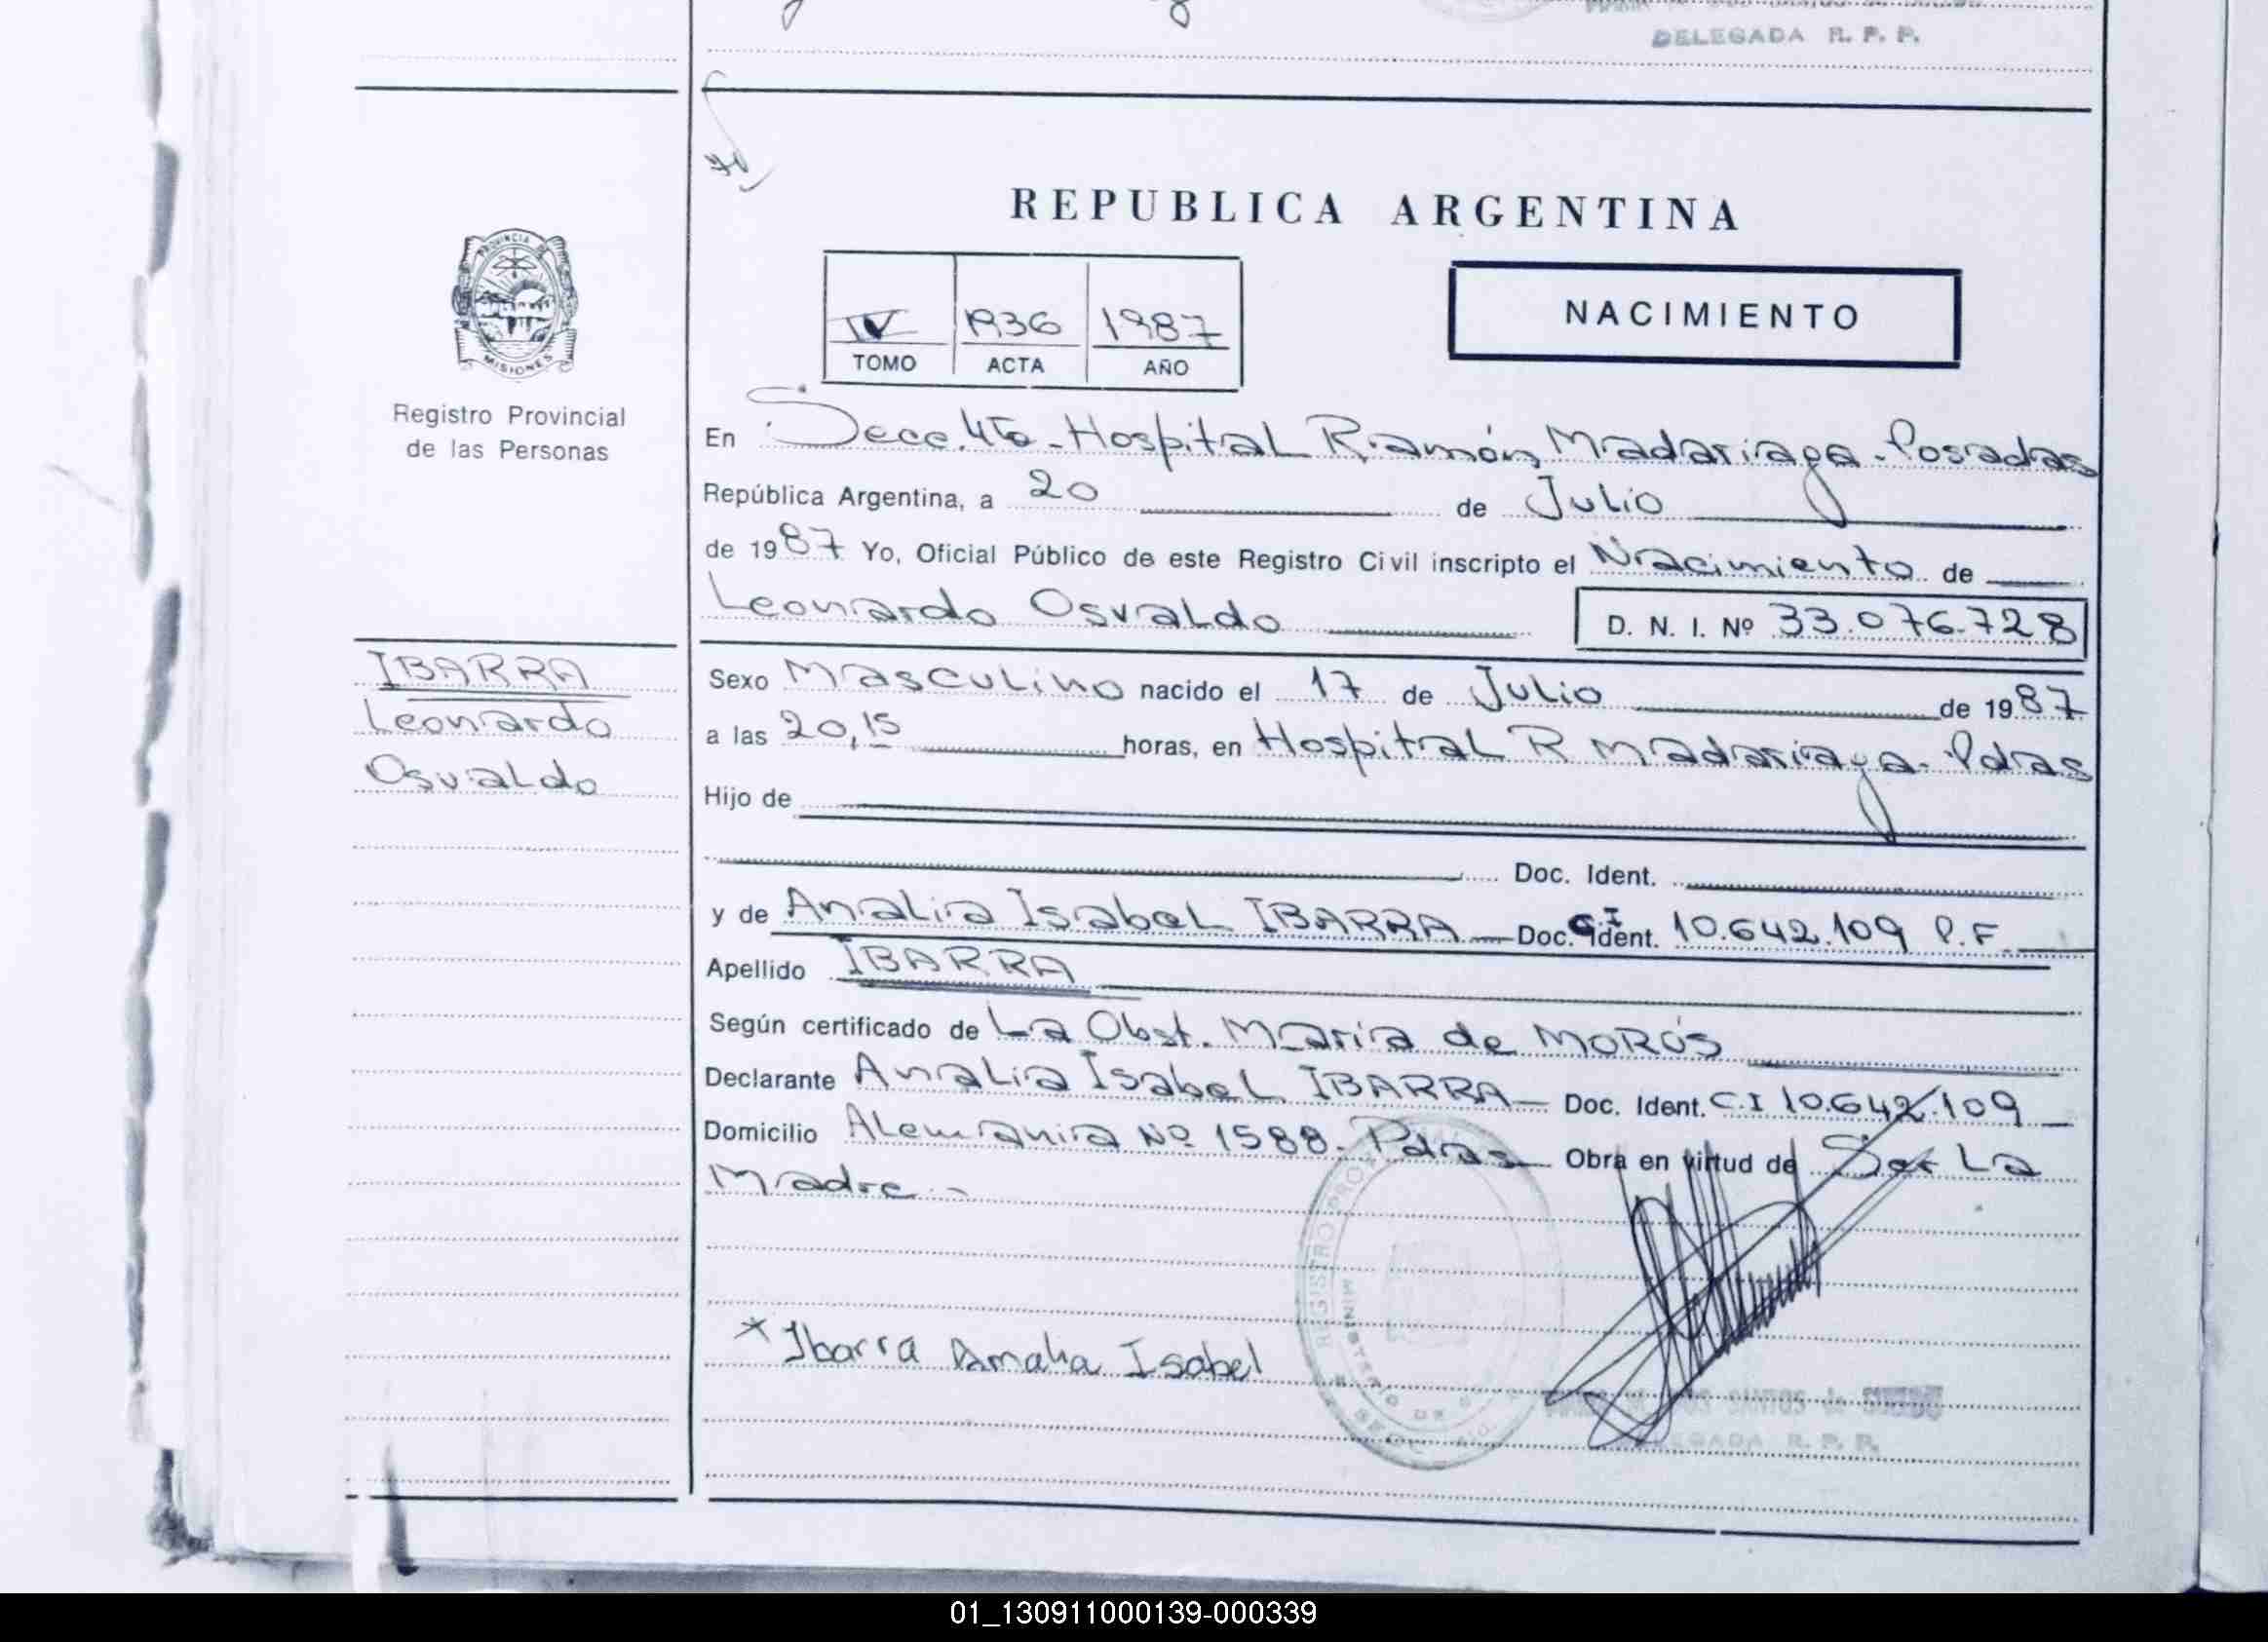 DELEGADA R. P. P.
REPUBLICA ARGENTINA
PROVINCIA DE
MISIONES
Registro Provincial
de las Personas
IV 1936 1987
TOMO ACTA AÑO
NACIMIENTO
En Secc. 4ta - Hospital Ramón Madariaga - Posadas
República Argentina, a 20 de Julio
de 1987 Yo, Oficial Público de este Registro Civil inscripto el Nacimiento de
Leonardo Osvaldo D. N. I. Nº 33.076.728
IBARRA
Leonardo
Osvaldo
Sexo Masculino nacido el 17 de Julio de 1987
a las 20,15 horas, en Hospital R Madariaga - Pdas
Hijo de
Doc. Ident.
y de Analia Isabel IBARRA Doc. Ident. C.I 10.642.109 P.F.
Apellido IBARRA
Según certificado de La Obst. Maria de MORÓS
Declarante Analia Isabel IBARRA Doc. Ident. C.I 10.642.109
Domicilio Alemania Nº 1588 - Pdas Obra en virtud de Ser La
Madre -
REGISTRO
MINISTERIO DE
* Ibarra Amalia Isabel
DELEGADA R. P. P.
01_130911000139-000339